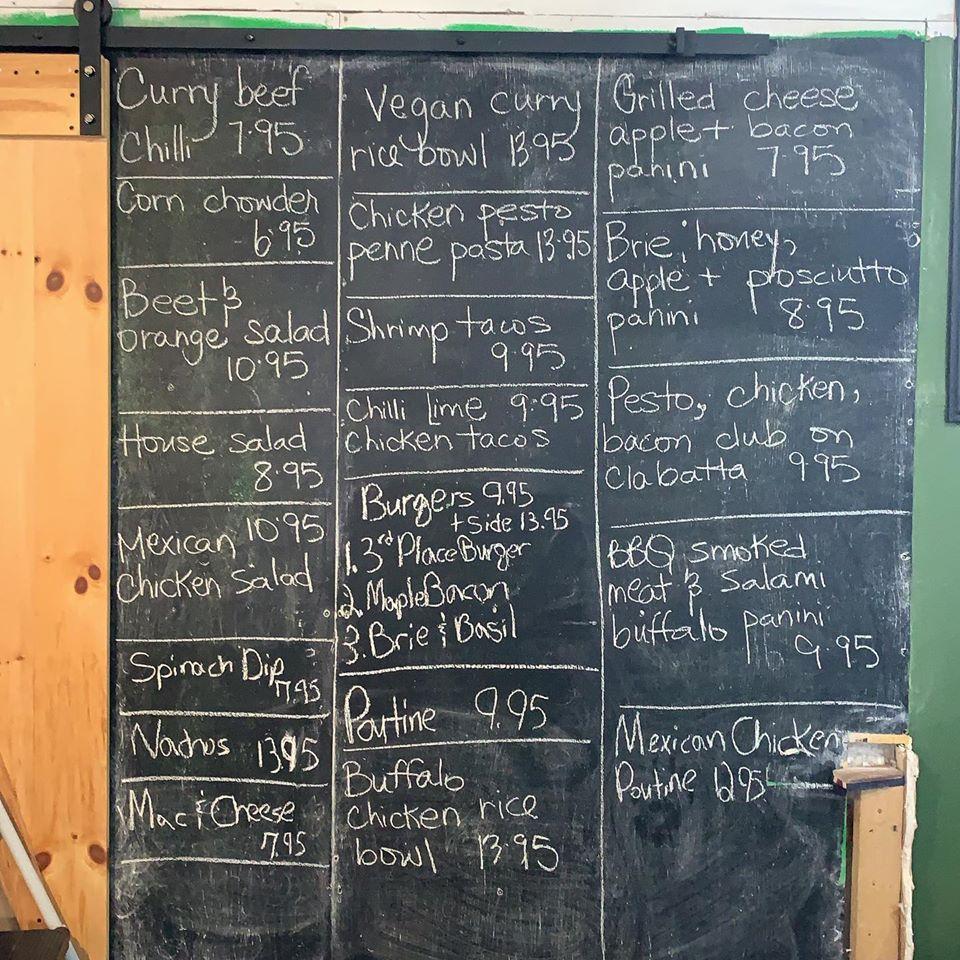 Curry beef
Chilli 7.95
Corn chowder
6.95
Beet &
orange salad
10.95
House salad
8.95
Mexican 10.95
Chicken Salad
Spinach Dip
7.95
Nachos 13.95
Mac & Cheese
7.95
Vegan curry
rice bowl 13.95
Chicken pesto
penne pasta 13.95
Shrimp tacos
9.95
Chilli Lime 9.95
chicken tacos
Burgers 9.95
+ Side 13.95
1. 3rd Place Burger
2. Maple Bacon
3. Brie & Basil
Poutine 9.95
Buffalo
chicken rice
bowl 13.95
Grilled cheese
apple + bacon
panini 7.95
Brie, honey,
apple + prosciutto
panini 8.95
Pesto, chicken,
bacon club on
Ciabatta 9.95
BBQ smoked
meat & Salami
buffalo panini
9.95
Mexican Chicken
Poutine 12.95